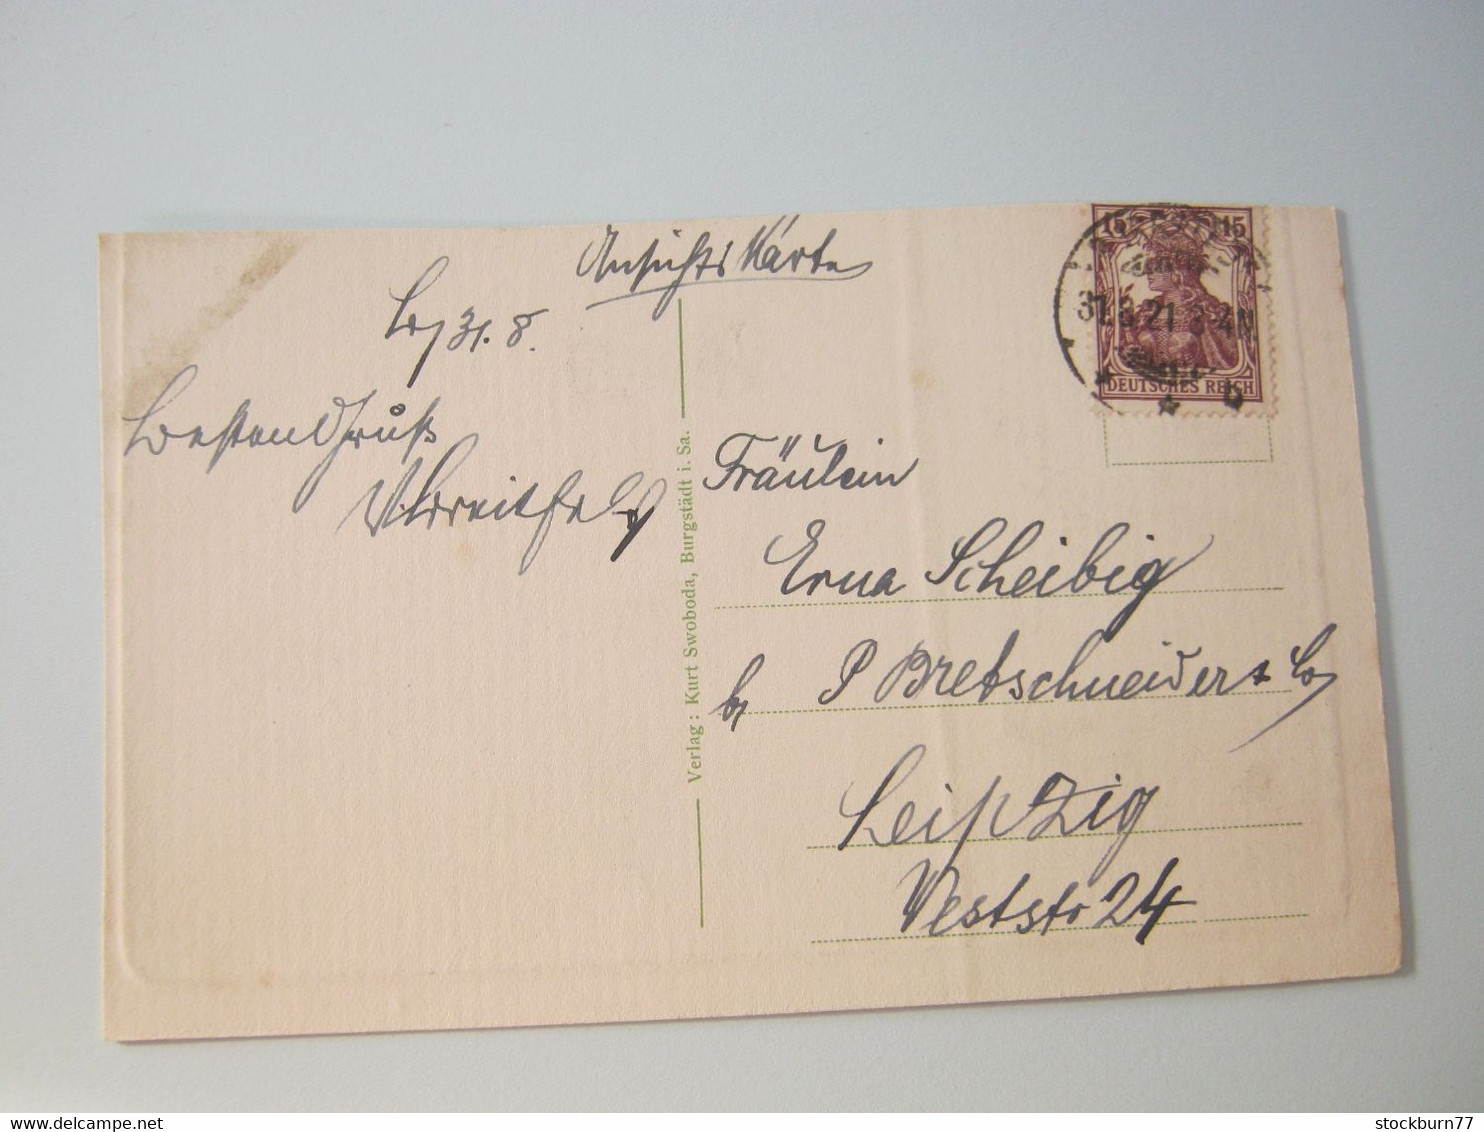 AnsichtsKarte
31. 8.
Besten Gruß
Verlag: Kurt Swoboda, Burgstädt i. Sa.
15 15
DEUTSCHES REICH
31.8.21 3-4N
b
Fräulein
Erna Scheibig
P Bretschneider & Co
Leipzig
Weststr 24
stockburn77